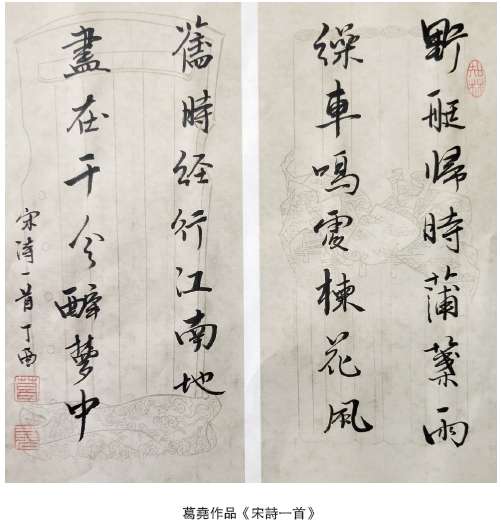 野艇歸時蒲葉雨
繰車鳴處楝花風
舊時經行江南地
盡在于今醉夢中
宋詩一首丁酉
葛堯作品《宋詩一首》